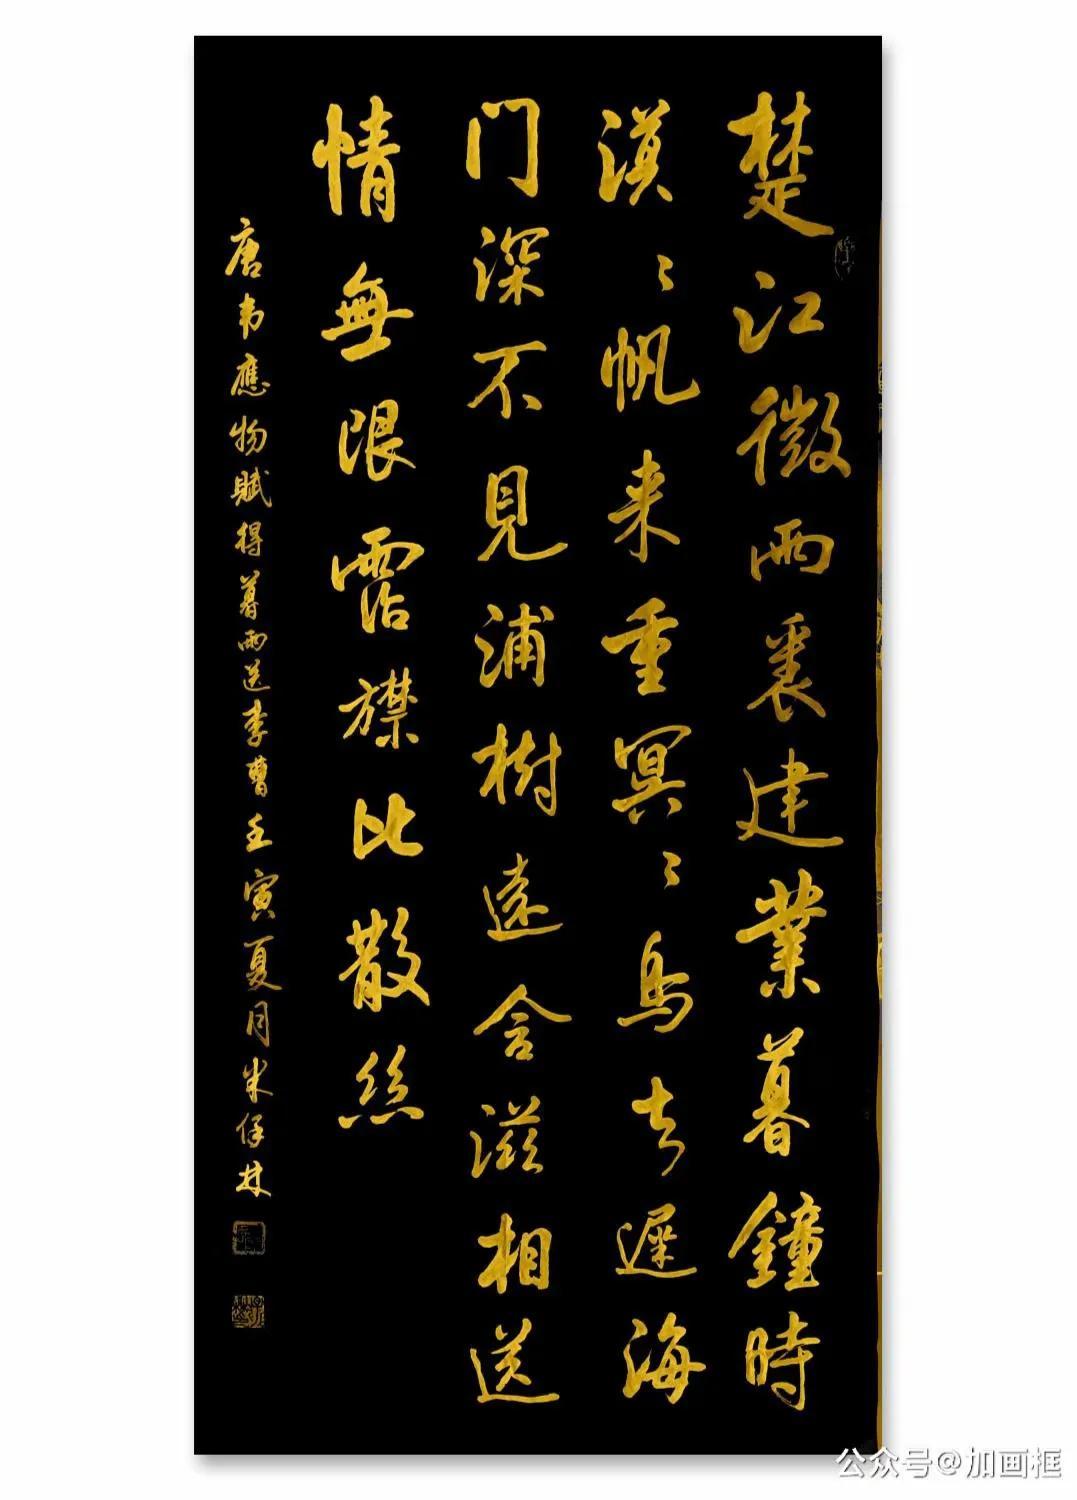 楚江微雨裏建業暮鐘時
漠〻帆来重冥〻鸟去遲海
门深不見浦樹遠含滋相送
情無限霑襟比散絲
唐韦應物賦得暮雨送李曹壬寅夏月朱保林
公众号@加画框